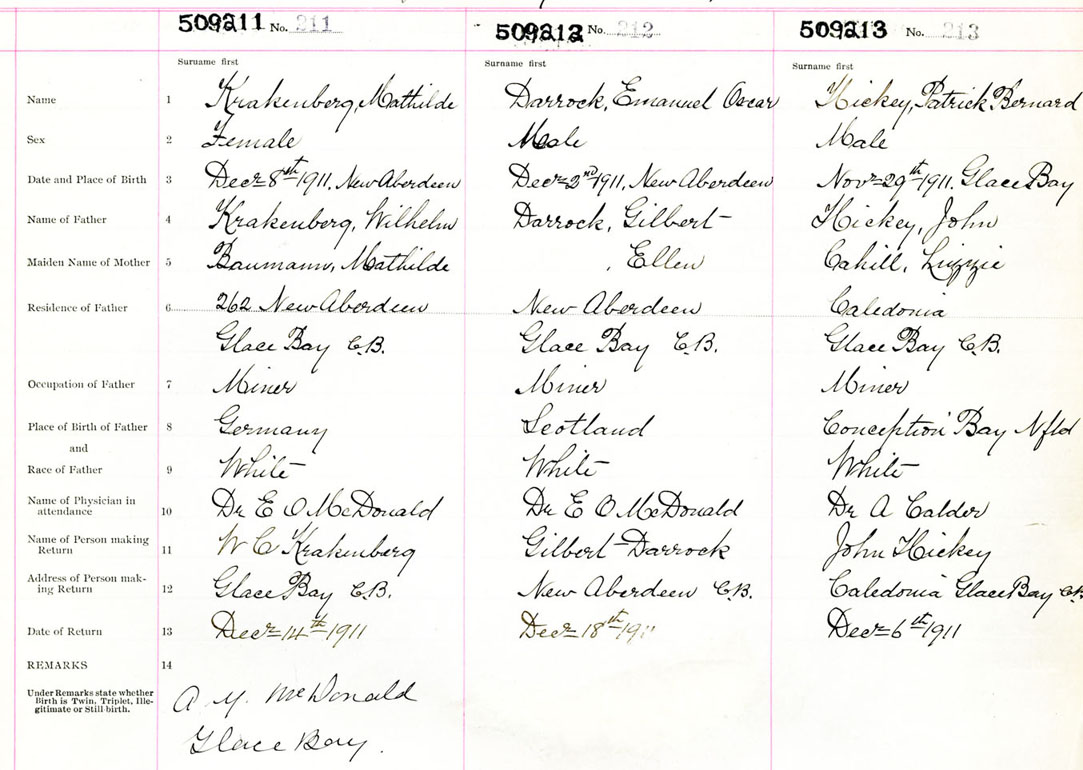 509211 No. 211 509212 No. 212 509213 No. 213
Surname first Surname first Surname first
Name 1 Krakenberg, Mathilde Darrock, Emanuel Oscar Hickey, Patrick Bernard
Sex 2 Female Male Male
Date and Place of Birth 3 Decr 8th 1911, New Aberdeen Decr 2nd 1911, New Aberdeen Novr 29th 1911. Glace Bay
Name of Father 4 Krakenberg, Wilhelm Darrock, Gilbert Hickey, John
Maiden Name of Mother 5 Baumann, Mathilde , Ellen Cahill, Lizzie
Residence of Father 6 262 New Aberdeen New Aberdeen Caledonia
Glace Bay C.B. Glace Bay C.B. Glace Bay C.B.
Occupation of Father 7 Miner Miner Miner
Place of Birth of Father 8 Germany Scotland Conception Bay Nfld
and
Race of Father 9 White White White
Name of Physician in
attendance 10 Dr E O McDonald Dr E O McDonald Dr A Calder
Name of Person making
Return 11 W C Krakenberg Gilbert Darrock John Hickey
Address of Person mak-
ing Return 12 Glace Bay C.B. New Aberdeen C.B. Caledonia Glace Bay C.B.
Date of Return 13 Decr 14th 1911 Decr 18th 1911 Decr 6th 1911
REMARKS 14
Under Remarks state whether
Birth is Twin, Triplet, Ille-
gitimate or Still-birth.
A. McDonald
Glace Bay.